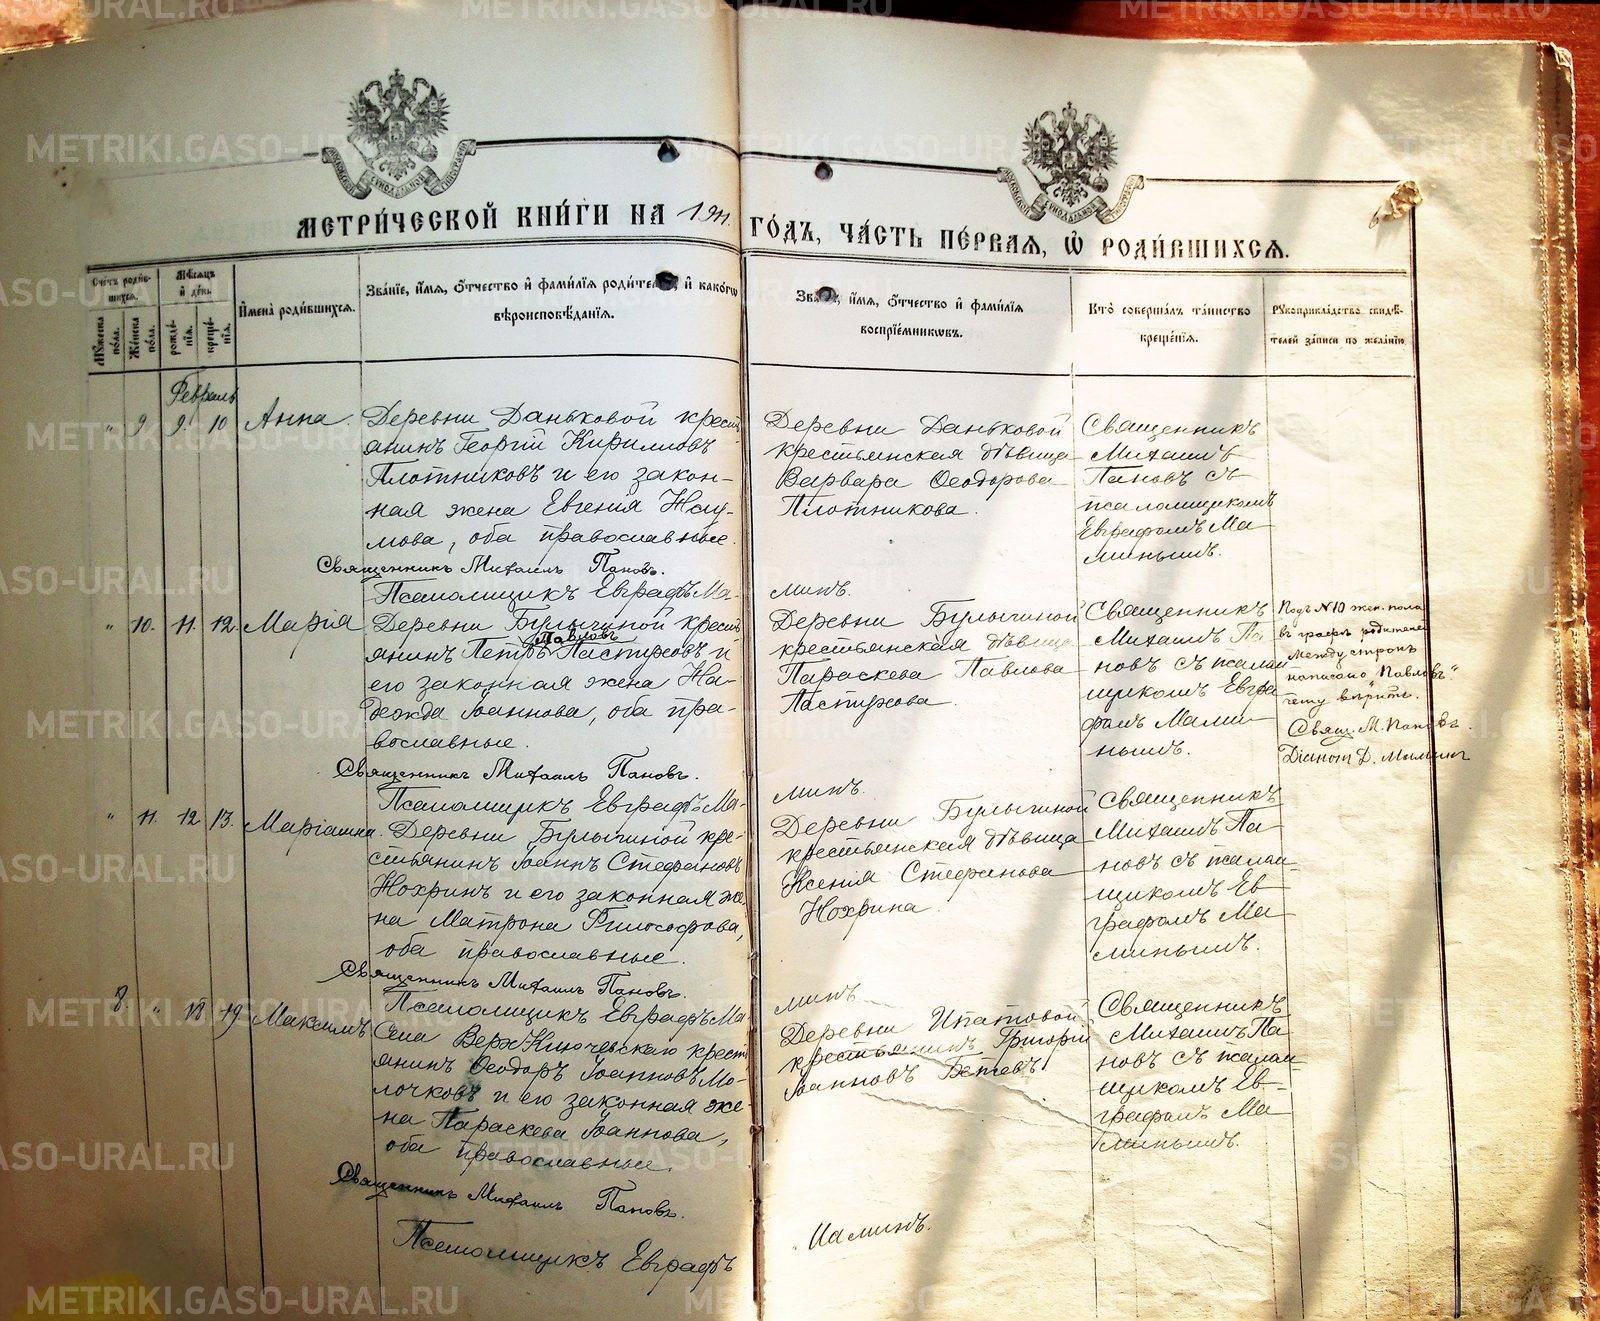 МЕТРИ́ЧЕСКОЙ КНИ́ГИ НА 1911 ГО́ДЪ, ЧА́СТЬ ПЕ́РВАЯ, Ѽ РОДИ́ВШИХСЯ.
6
Счетъ роди́вшихся.
Мѣсяцъ и день.
И҆мена̀ роди́вшихся.
Зва́нїе, и҆́мя, ѻ҆́тчество и҆ фами́лїя роди́телей, и҆ како́гѡ
вѣроисповѣ́данїя.
Зва́нїе, и҆́мя, ѻ҆́тчество и҆ фами́лїя
воспрїе́мникѡвъ.
Кто̀ соверша́лъ та́инство
креще́нїя.
Рꙋкоприкла́дство свидѣ́-
телей за́писи по жела́нїю.
Мꙋжеска по́ла.
Же́нска по́ла.
рожде́нїя.
креще́нїя.
Февраль
" 9 9. 10 Анна.
Деревни Даньковой кресть-
янинъ Георгій Кирилловъ
Плотниковъ и его закон-
ная жена Евгенія Наумова, оба православные.
Священникъ Михаилъ Пановъ.
Псаломщикъ Евграфъ Ма-
минъ.
Деревни Даньковой
крестьянская дѣвица
Варвара Ѳеодорова
Плотникова.
Священникъ
Михаилъ
Пановъ съ
псаломщикомъ
Евграфомъ Ма
минымъ.
" 10. 11. 12. Марія
Деревни Булычиной кресть
Павловъ
янинъ Петръ Пастуховъ и
его законная жена На-
дежда Іоаннова, оба пра-
вославные.
Священникъ Михаилъ Пановъ.
Псаломщикъ Евграфъ Ма-
минъ.
Деревни Булычиной
крестьянская дѣвица
Параскева Павлова
Пастухова.
Священникъ
Михаилъ Па
новъ съ псалом
щикомъ Евгра
фомъ Мами-
нымъ.
Подъ N10 жен. пола
въ графѣ родителей
между строкъ
написано "Павловъ"
чему вѣрить.
Свящ. М. Пановъ.
" 11. 12 13. Маріамна.
Деревни Булычиной кре-
стьянинъ Іоаннъ Стефановъ
Нохринъ и его законная же-
на Матрона Философова,
оба православные.
Священникъ Михаилъ Пановъ.
Псаломщикъ Евграфъ Ма
минъ
Деревни Булычиной
крестьянская дѣвица
Ксенія Стефанова
Нохрина.
Священникъ
Михаилъ Па-
новъ съ псалом-
щикомъ Ев-
графомъ Ма-
минымъ.
8. " 18 19 Максимъ
Села Верх-Ключевскаго кресть
янинъ Ѳеодоръ Іоанновъ Мо-
лочковъ и его законная же-
на Параскева Іоаннова,
оба православные.
Священникъ Михаилъ Пановъ.
Псаломщикъ Евграфъ
Маминъ.
Деревни Ипатовой
крестьянинъ Григорій
Іоанновъ Бѣтевъ
Священникъ
Михаилъ Па-
новъ съ псалом-
щикомъ Ев-
графомъ Ма
минымъ.
METRIKI.GASO-URAL.RU